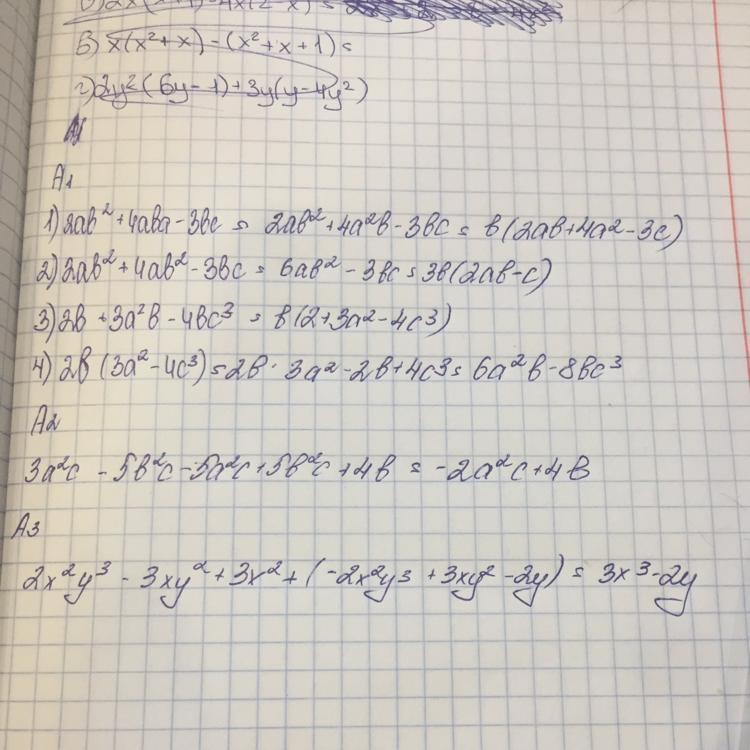 в) x(x²+x)-(x²+x+1)=
г) 2y²(6y-1)+3y(y-4y²)
A1
1) 2ab²+4aba-3bc = 2ab²+4a²b-3bc = b(2ab+4a²-3c)
2) 2ab²+4ab²-3bc = 6ab²-3bc = 3b(2ab-c)
3) 2b+3a²b-4bc³ = b(2+3a²-4c³)
4) 2b(3a²-4c³) = 2b·3a²-2b+4c3 = 6a²b-8bc³
A2
3a²c-5b²c-5a²c+5b²c+4b = -2a²c+4b
A3
2x²y³-3xy²+3x²+(-2x²y3+3xy²-2y) = 3x³-2y